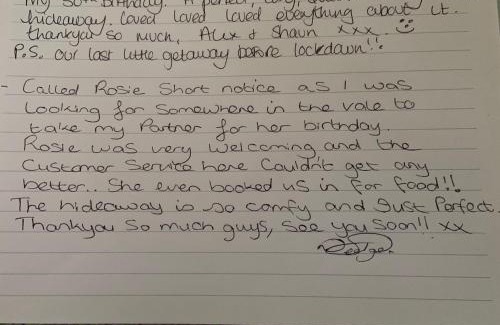 My 30th birthday. A perfect, cosy,
hideaway. Loved loved loved everything about it.
thankyou so much, Alex & Shaun xxx. 
P.S. our last little getaway before lockdown!!
- Called Rosie Short notice as I was
Looking for somewhere in the vale to
take my Partner for her birthday.
Rosie was very welcoming and the
Customer Service here Couldn't get any
better.. She even booked us in for food!!
The hideaway is so comfy and Just Perfect.
Thankyou so much guys, See you Soon!! xx